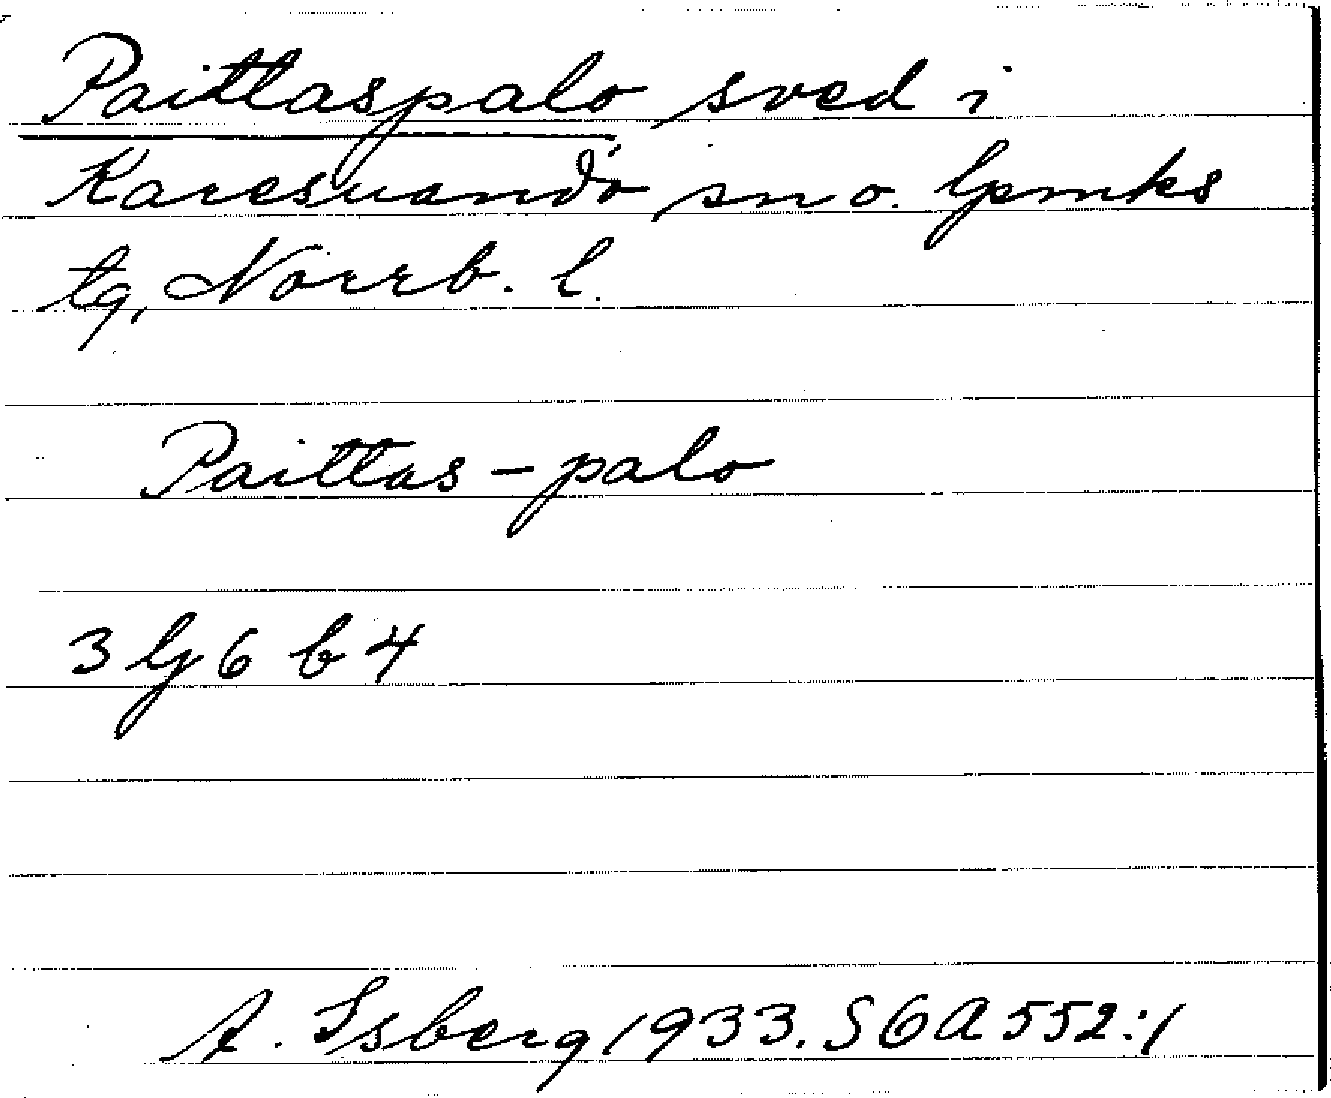 Paittaspalo sved i
Karesuando sn o. lpmks
tg, Norrb. l.
Paittas-palo
3 G 6 b 4
A. Isberg 1933. SOA 552:1